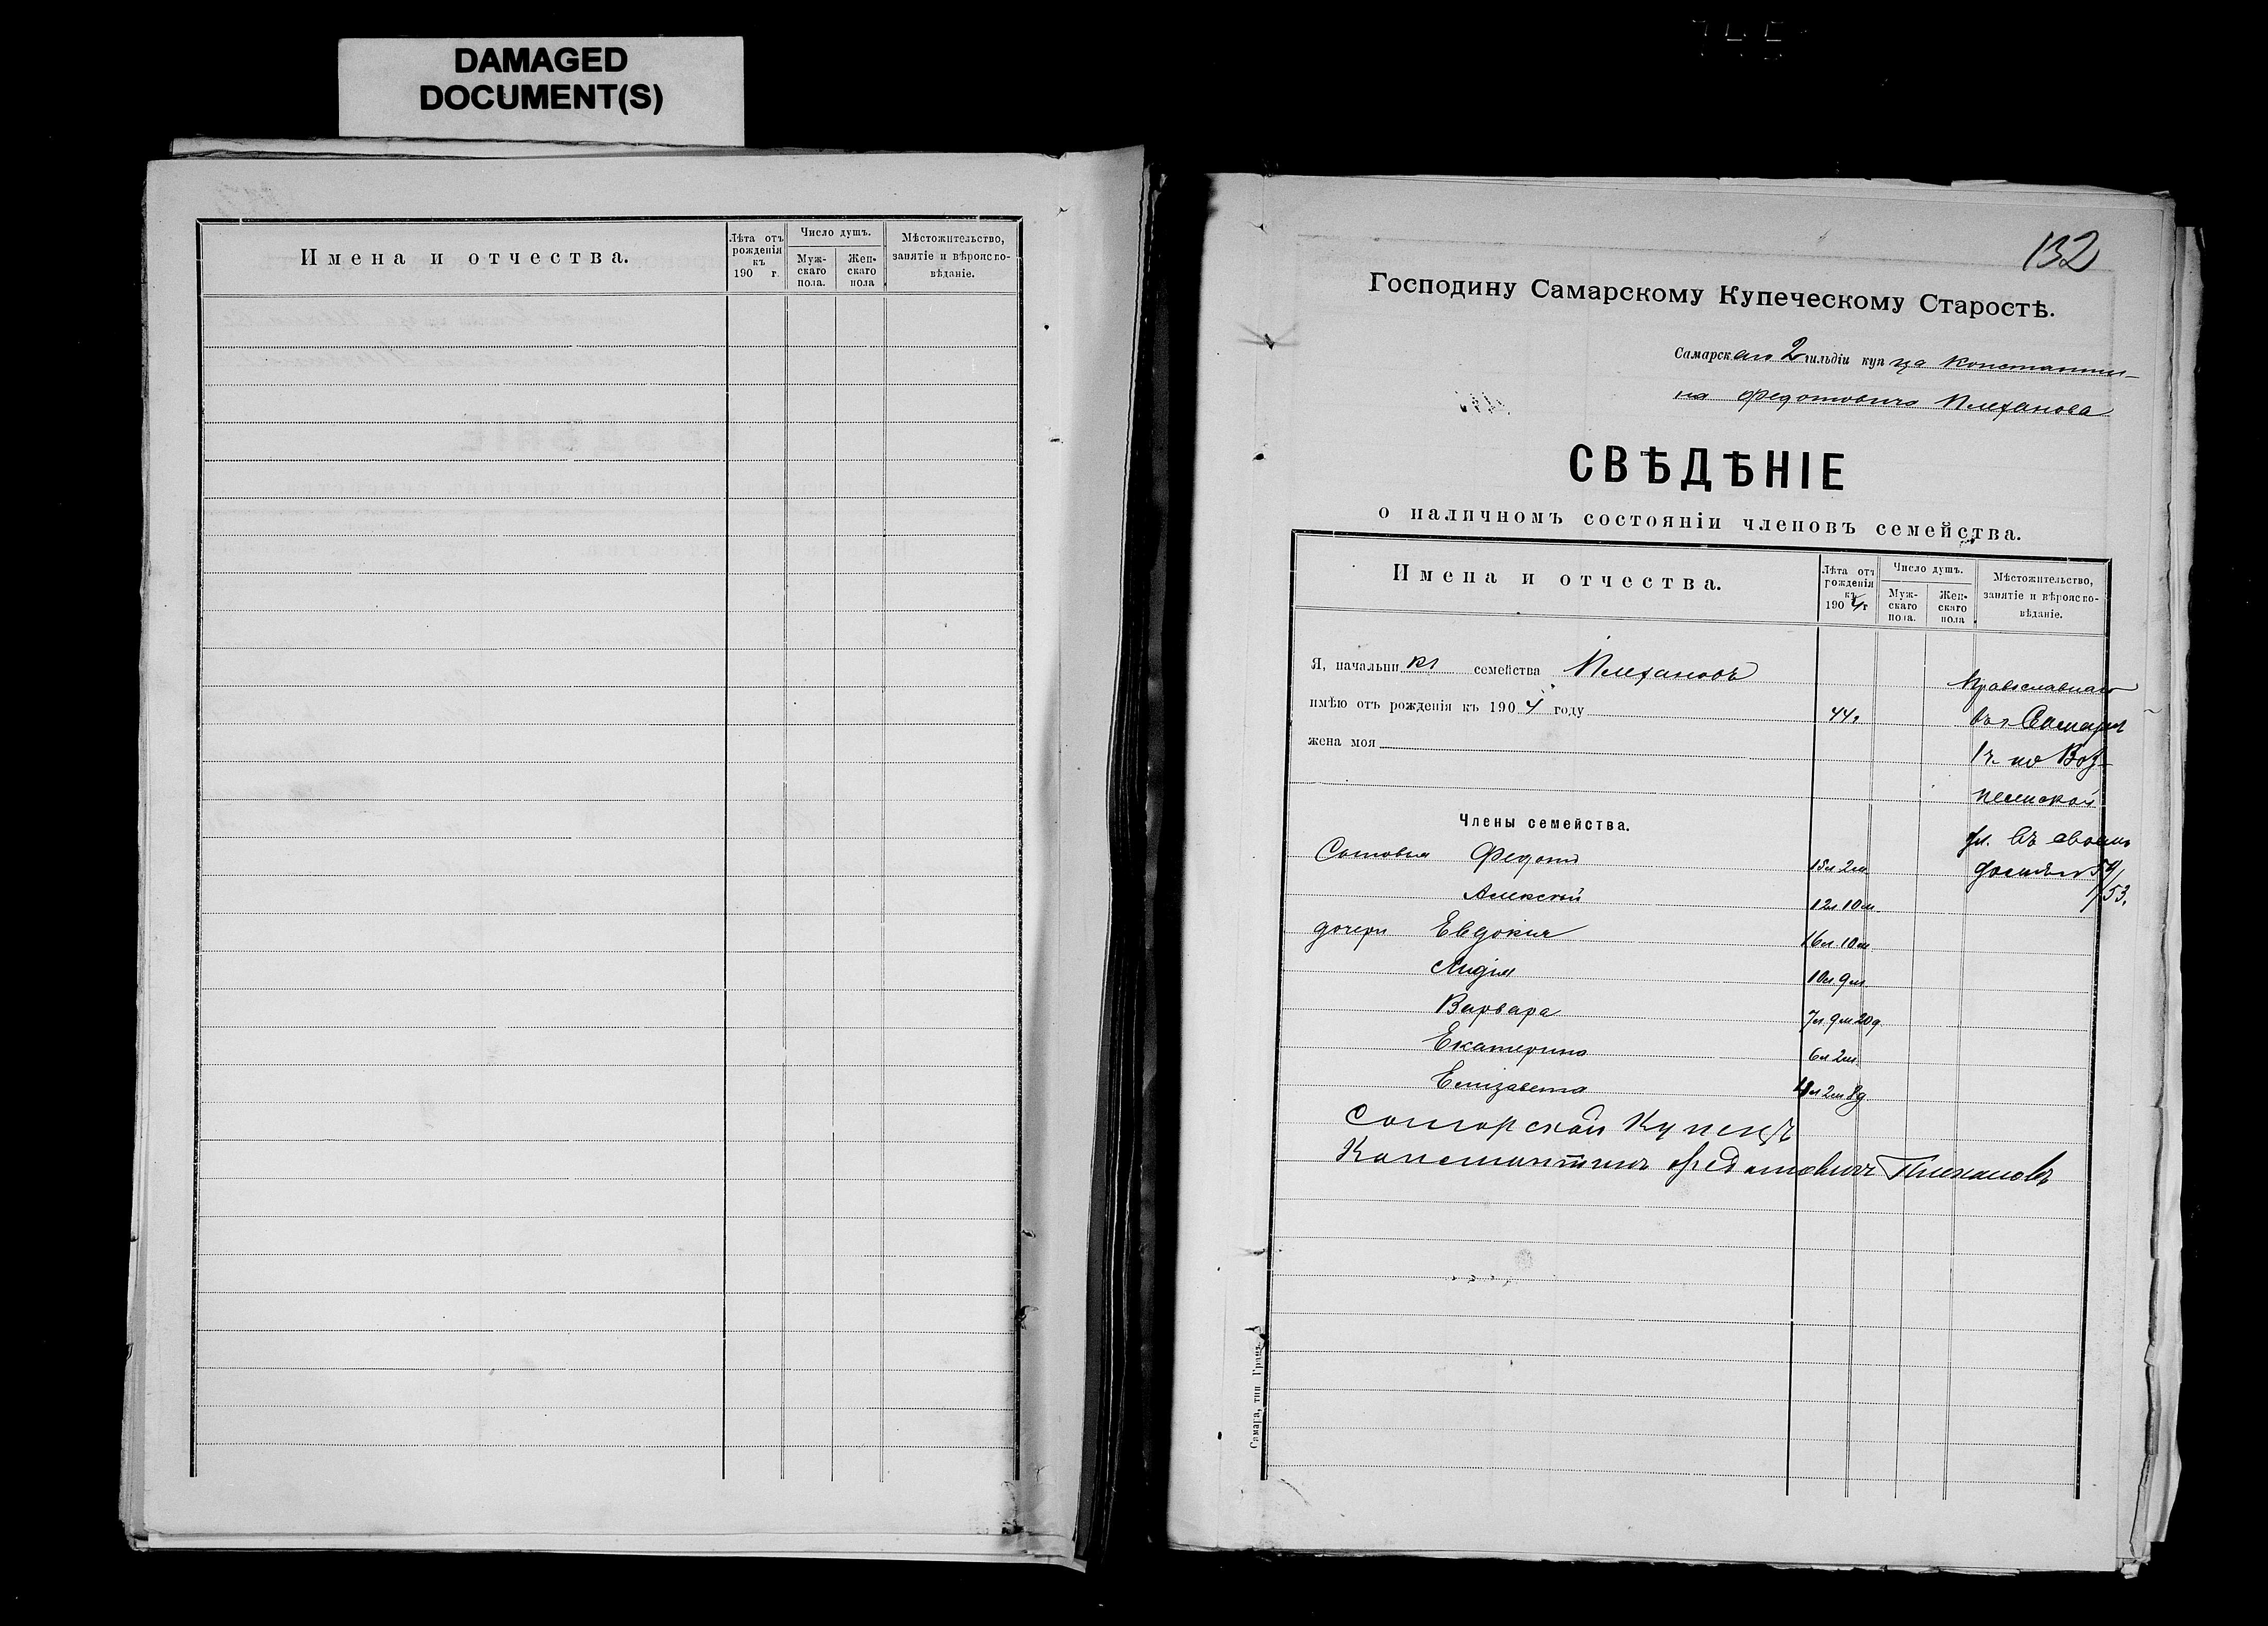 DAMAGED
DOCUMENT(S)
Имена и отчества.
Лѣта отъ рожденія къ 190 г.
Число душъ.
Муж-скаго пола.
Жен-скаго пола
Мѣстожительство, занятіе и вѣроиспо-вѣданіе.
132
Господину Самарскому Купеческому Старостѣ.
Самарскаго 2 гильдіи купца Константи-
на Федотовича Плеханова
СВѢДѢНІЕ
о наличномъ состояніи членовъ семейства.
Имена и отчества.
Лѣта отъ рожденія къ 1904 г
Число душъ.
Муж-скаго пола.
Жен-скаго пола
Мѣстожительство, занятіе и вѣроиспо-вѣданіе.
Я, начальникъ семейства Плехановъ
Православнаго
имѣю отъ рожденія къ 1904 году 44.
въ г Самарѣ
жена моя
1 ч. по Воз-
несенской
Члены семейства.
ул. въ своемъ
Сыновья Федотъ 15л 2м
домѣ № 51/53.
Алексѣй 12л 10м
дочери Евдокия 16л 10м
Лидія 10л. 9м.
Варвара 7л. 9м 20д.
Екатерина 6л 2м.
Елизавета л 2м 8д.
Самарской Купецъ
Константинъ Федотовичъ Плехановъ
Самара, тип Гран